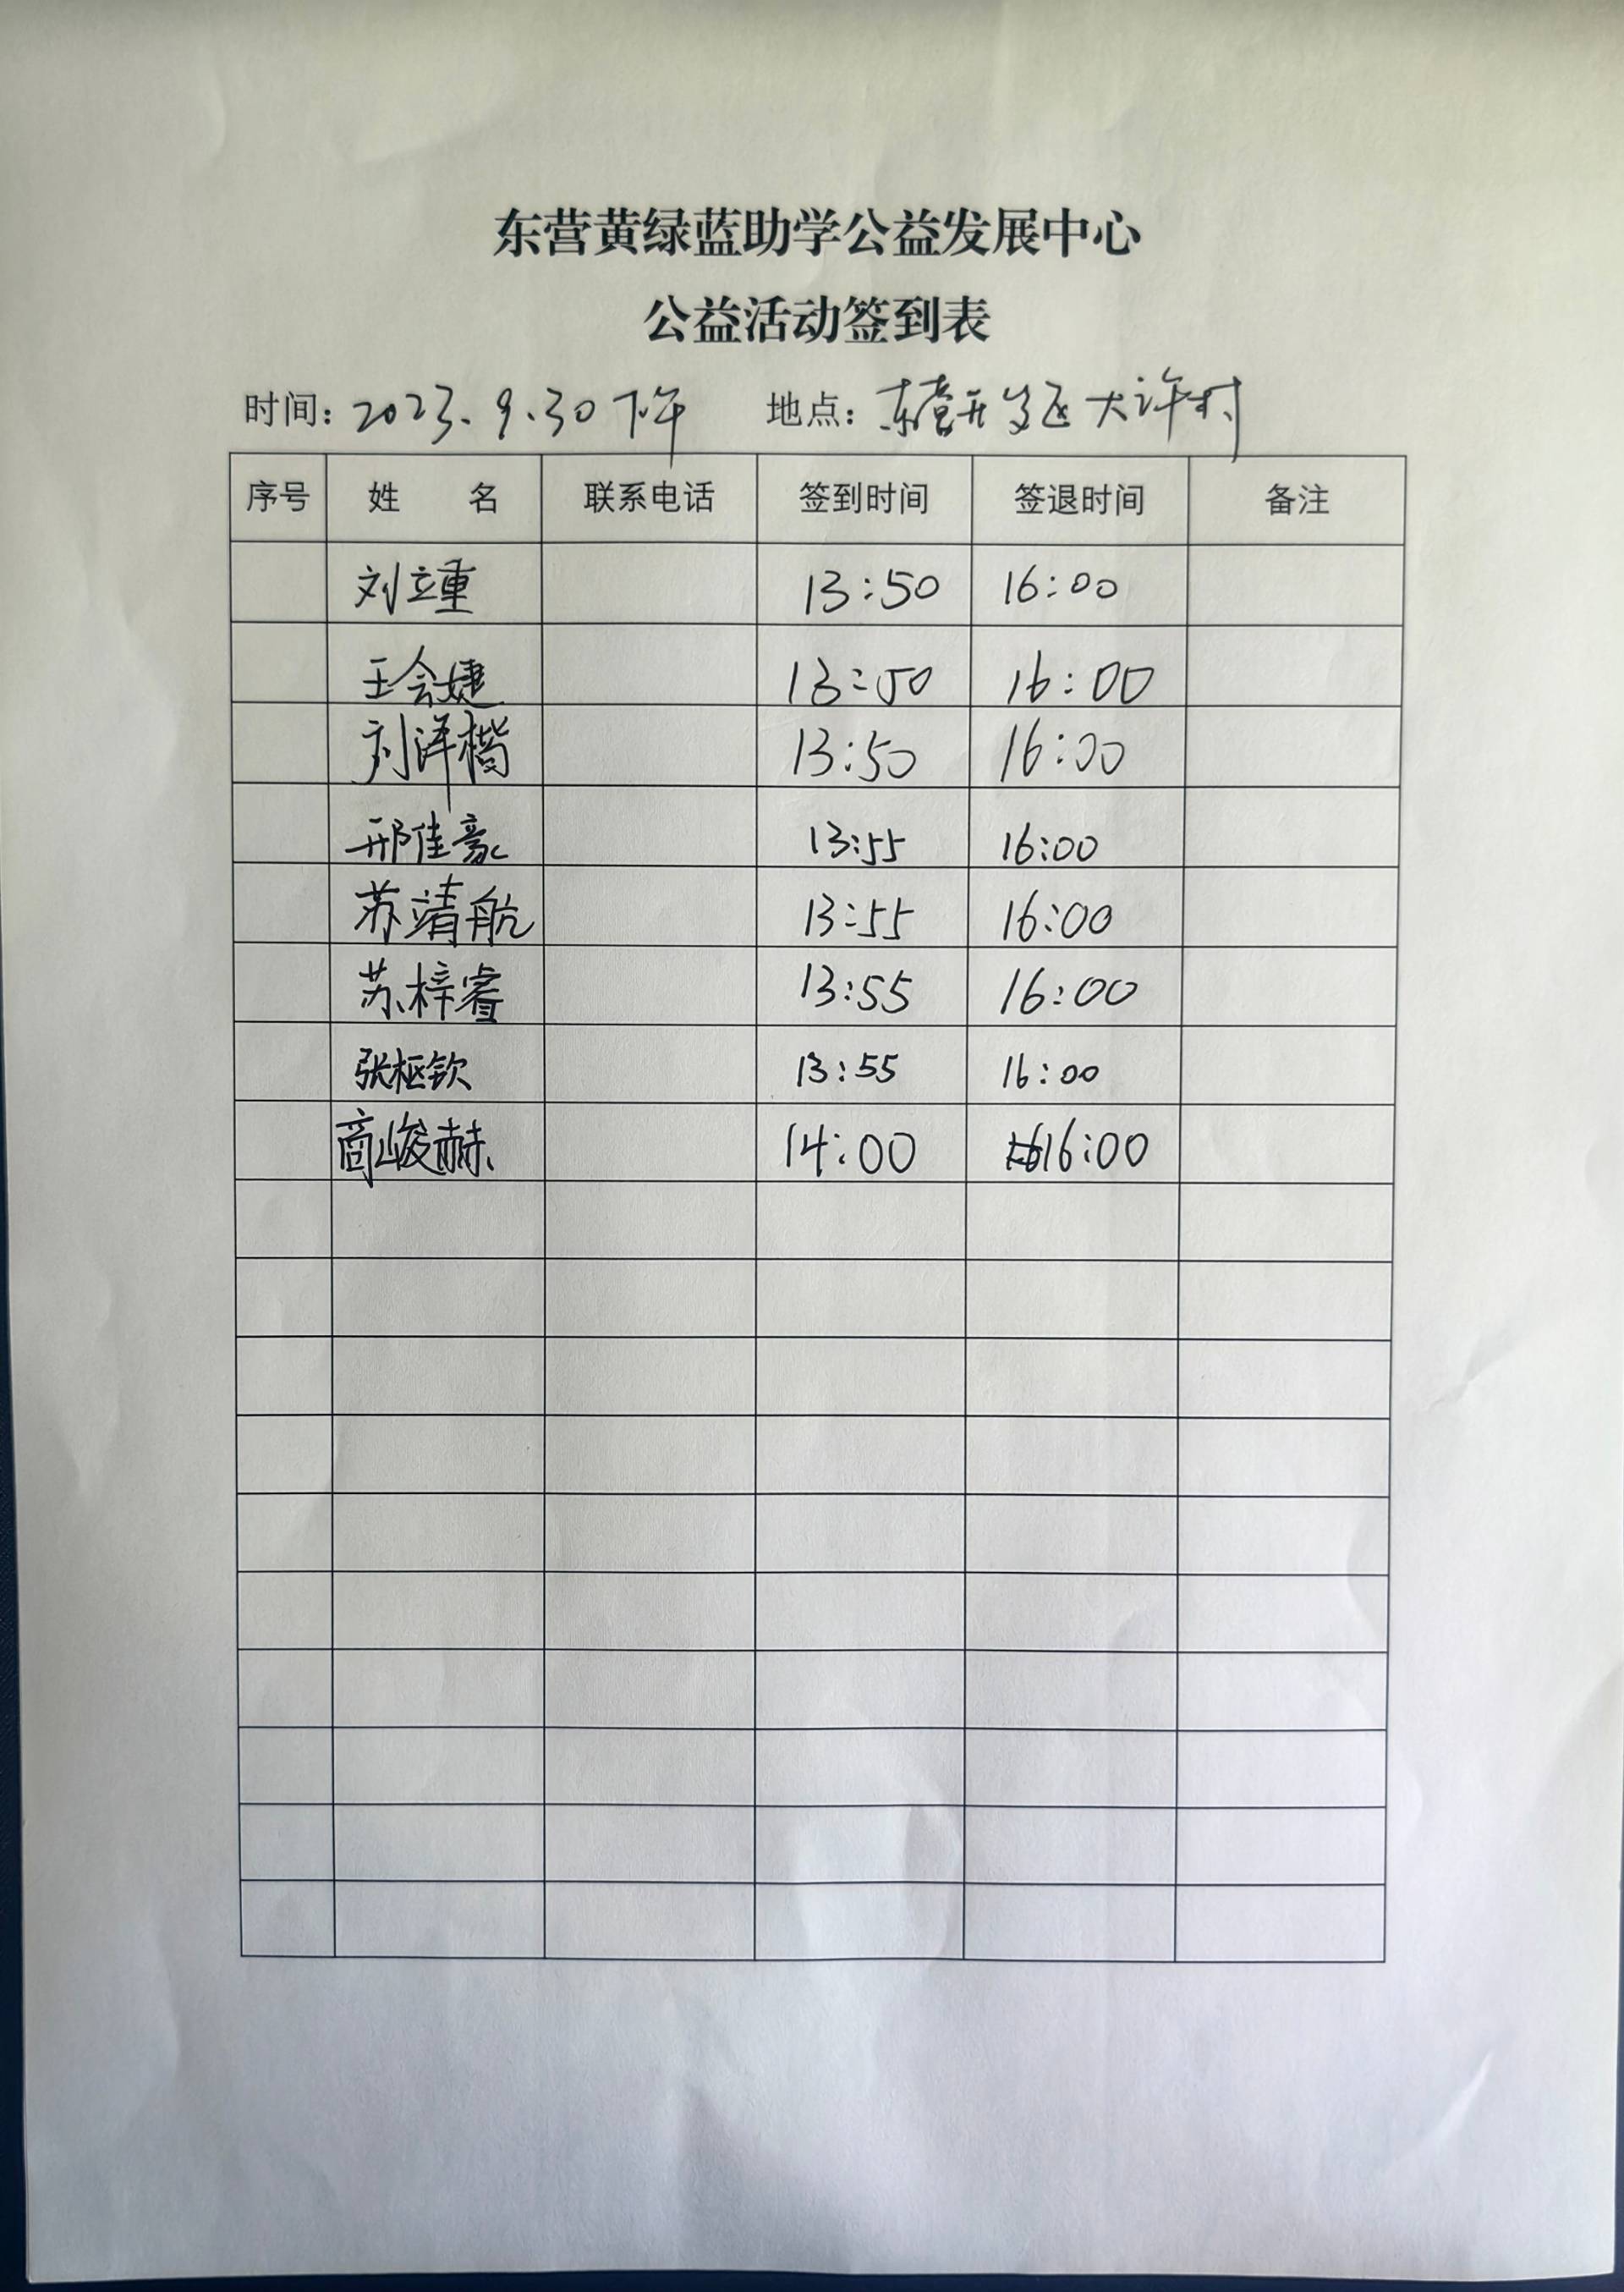 东营黄绿蓝助学公益发展中心
公益活动签到表
时间: 2023.9.30下午 地点: 东营开发区大许村
序号 姓 名 联系电话 签到时间 签退时间 备注
刘立重 13:50 16:00
王会婕 13:50 16:00
刘洋楷 13:50 16:00
邢佳豪 13:55 16:00
苏靖航 13:55 16:00
苏梓睿 13:55 16:00
张枢钦 13:55 16:00
商峻赫 14:00 16:00